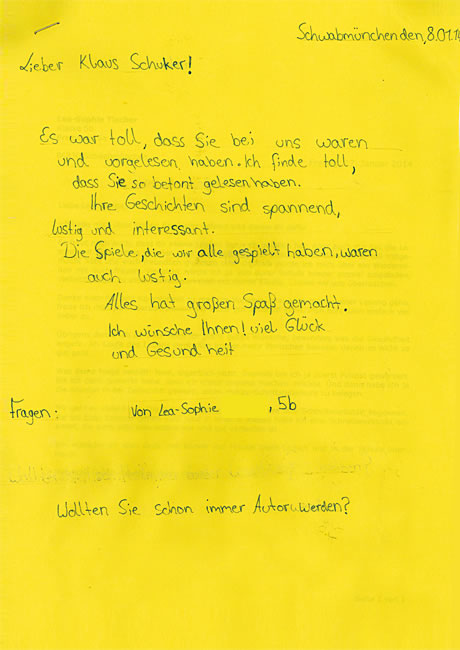 Schwabmünchen den, 8.01.14
Lieber Klaus Schuker!
Es war toll, dass Sie bei uns waren
und vorgelesen haben. Ich finde toll,
dass Sie so betont gelesen haben.
Ihre Geschichten sind spannend,
lustig und interessant.
Die Spiele, die wir alle gespielt haben, waren
auch lustig.
Alles hat großen Spaß gemacht.
Ich wünsche Ihnen! viel Glück
und Gesundheit
Fragen: von Lea-Sophie , 5b
Wollten Sie schon immer Autor werden?